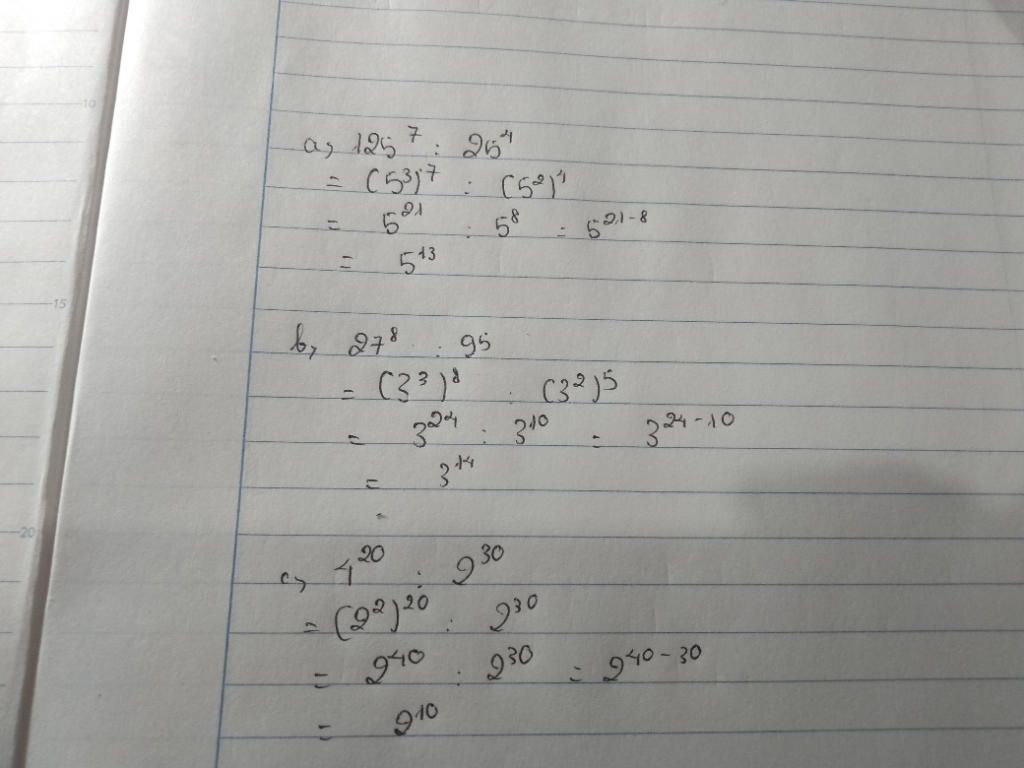 10
15
20
a, 125⁷ : 25⁴
= (5³)⁷ : (5²)⁴
= 5²¹ : 5⁸ = 5²¹⁻⁸
= 5¹³
b, 27⁸ : 95
= (3³)⁸ : (3²)⁵
= 3²⁴ : 3¹⁰ = 3²⁴⁻¹⁰
= 3¹⁴
=
c, 4²⁰ : 2³⁰
= (2²)²⁰ : 2³⁰
= 2⁴⁰ : 2³⁰ = 2⁴⁰⁻³⁰
= 2¹⁰